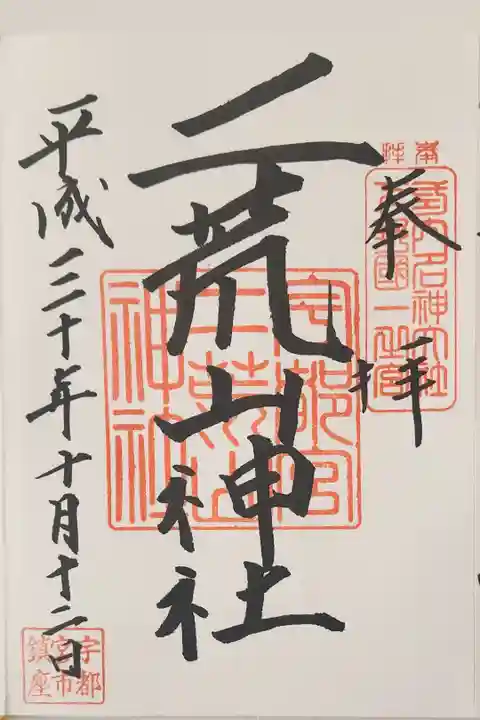 奉拝
奉拝
式内名神大社
下野國一之宮
二荒山神社
宇都宮
二荒山
神社
平成三十年十月十二日
宇都
宮市
鎮座